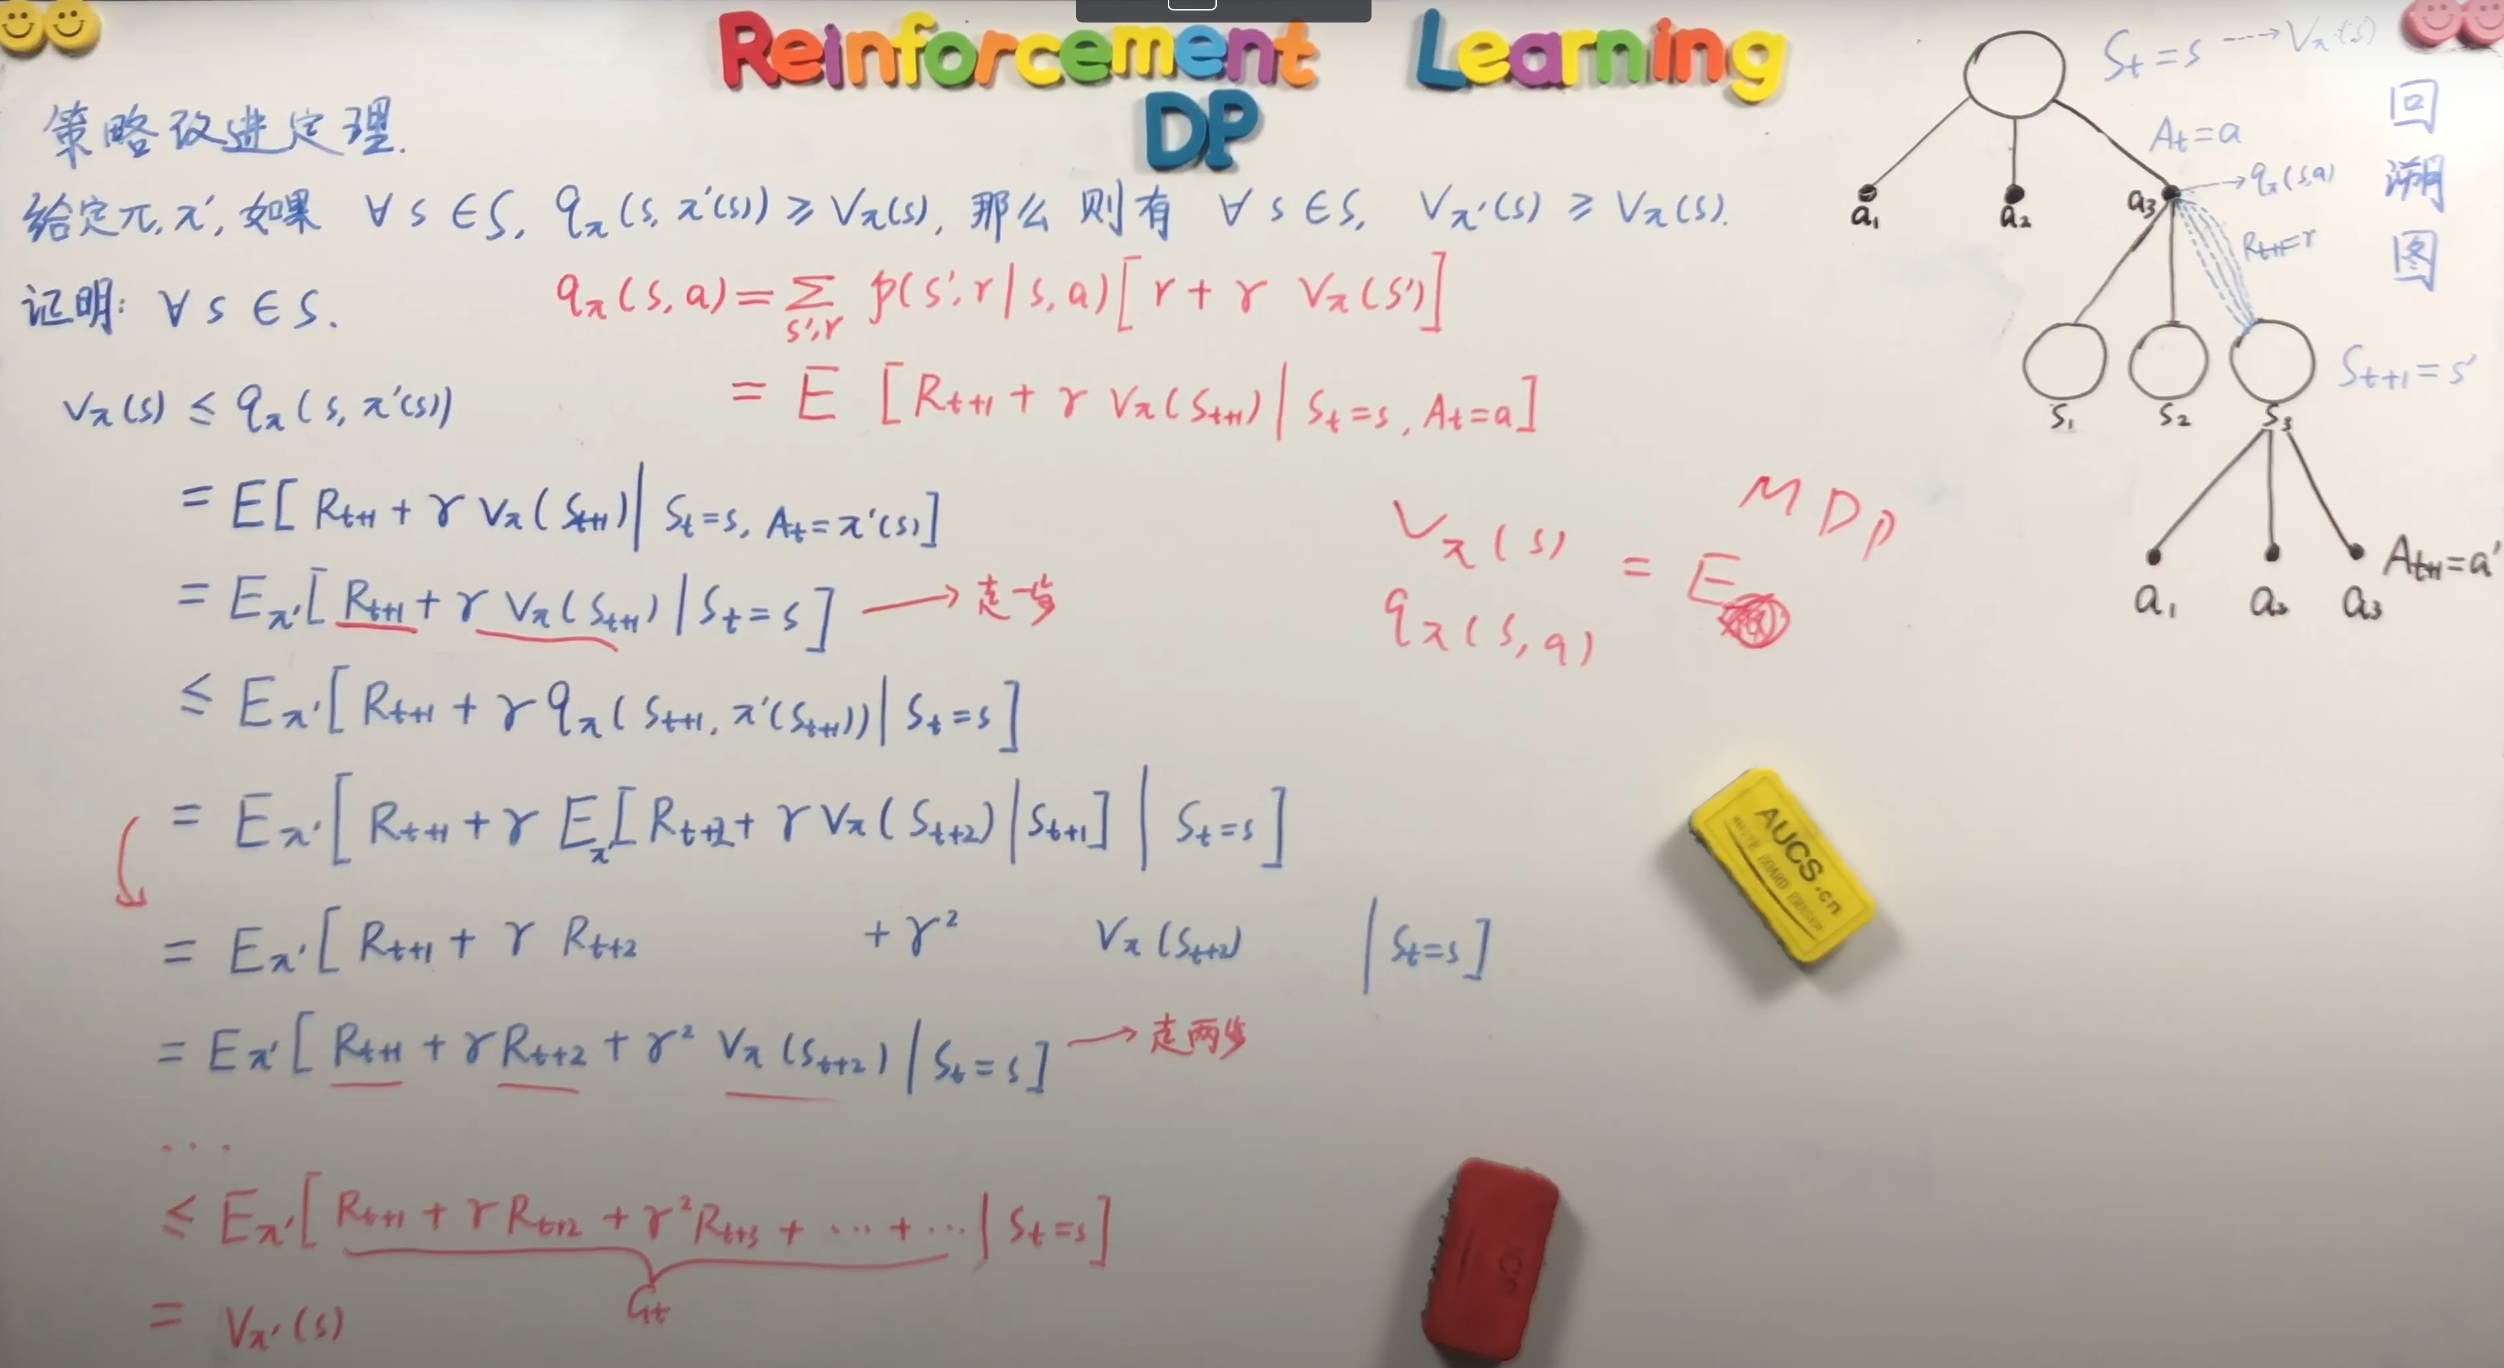 Reinforcement Learning
DP
策略改进定理.
给定π,π′,如果 ∀s∈S, qπ(s,π′(s)) ≥ Vπ(s), 那么 则有 ∀s∈S, Vπ′(s) ≥ Vπ(s).
证明: ∀s∈S.
qπ(s,a) = Σ_{s′,r} p(s′,r|s,a)[r + γ Vπ(s′)]
= E [R_{t+1} + γ Vπ(S_{t+1}) | S_t=s, A_t=a]
Vπ(s) ≤ qπ(s,π′(s))
= E[R_{t+1} + γ Vπ(S_{t+1}) | S_t=s, A_t=π′(s)]
= Eπ′[R_{t+1} + γ Vπ(S_{t+1}) | S_t=s] → 走一步
≤ Eπ′[R_{t+1} + γ qπ(S_{t+1}, π′(S_{t+1})) | S_t=s]
= Eπ′[R_{t+1} + γ Eπ′[R_{t+2} + γ Vπ(S_{t+2}) | S_{t+1}] | S_t=s]
= Eπ′[R_{t+1} + γ R_{t+2} + γ² Vπ(S_{t+2}) | S_t=s]
= Eπ′[R_{t+1} + γ R_{t+2} + γ² Vπ(S_{t+2}) | S_t=s] → 走两步
...
≤ Eπ′[R_{t+1} + γ R_{t+2} + γ² R_{t+3} + ... + ... | S_t=s]
G_t
= Vπ′(s)
MDP
Vπ(s)
= E
qπ(s,a)
S_t=s ⇢ Vπ(s)
A_t=a
→ qπ(s,a)
a₁ a₂ a₃
R_{t+1}=r
S_{t+1}=s′
s₁ s₂ s₃
A_{t+1}=a′
a₁ a₂ a₃
回
溯
图
AUCS.cn
WHITE BOARD ERASER